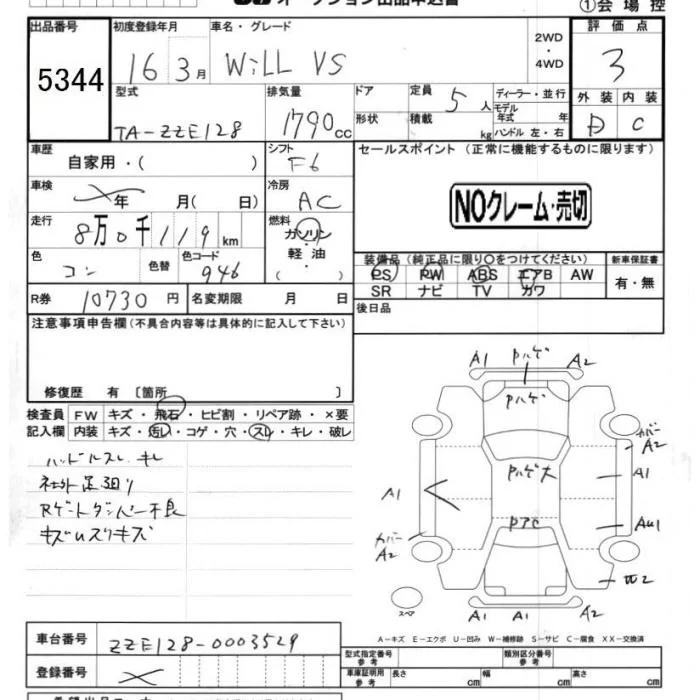 オークション出品申込書
①会場控
出品番号
5344
初度登録年月
16 3月
車名・グレード
WiLL VS
2WD
・
4WD
評価点
3
型式
TA-ZZE128
排気量
1790cc
ドア
形状
定員 5人
積載 kg
ディーラー・並行
モデル年式 年
ハンドル 左・右
外装 内装
D C
車歴
自家用・( )
シフト
F6
セールスポイント (正常に機能するものに限ります)
車検
年 月( 日)
冷房
AC
NOクレーム・売切
走行
8万0千119km
燃料
ガソリン
軽油
( )
色
コン
色替
色コード
946
装備品(純正品に限り○をつけてください)
新車保証書
PS PW ABS エアB AW
SR ナビ TV カワ
有・無
R券 10730円
名変期限 月 日
後日品
注意事項申告欄(不具合内容等は具体的に記入して下さい)
修復歴 有 〔箇所 〕
検査員記入欄
FW キズ・飛石・ヒビ割・リペア跡・×要
内装 キズ・汚レ・コゲ・穴・スレ・キレ・破レ
ハンドルスレ、キレ
社外足廻り
Rゲートダンパー不良
キズUスリキズ
A1 Pハゲ A2
Pハゲ
カバー
A2
Pハゲ大
A1
A1
PアC
AU1
カバー
A2
W2
スペア
A1 A1 A2
A−キズ E−エクボ U−凹み W−補修跡 S−サビ C−腐食 XX−交換済
車台番号
ZZE128-0003529
型式指定番号
参考
類別区分番号
参考
登録番号
車庫証明用
参考
長さ cm 幅 cm 高さ cm